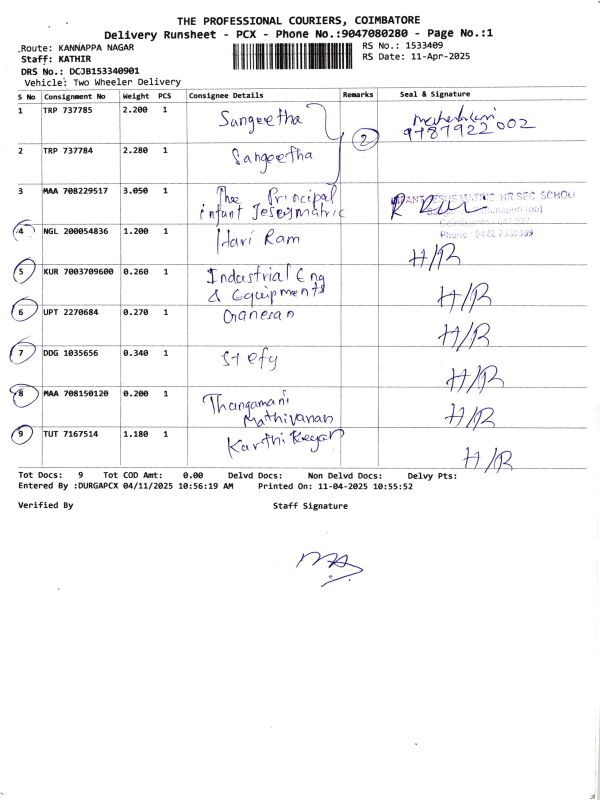 THE PROFESSIONAL COURIERS, COIMBATORE
Delivery Runsheet - PCX - Phone No.:9047080280 - Page No.:1
Route: KANNAPPA NAGAR
RS No.: 1533409
Staff: KATHIR
RS Date: 11-Apr-2025
DRS No.: DCJB153340901
Vehicle: Two Wheeler Delivery
S No Consignment No Weight PCS Consignee Details Remarks Seal & Signature
1 TRP 737785 2.200 1 Sangeetha
9787922002
2
2 TRP 737784 2.280 1 Sangeetha
3 MAA 708229517 3.050 1 The Principal
infant Jesus matric
JESUS MATRIC. HR SEC SCHOU
4 NGL 200054836 1.200 1 Hari Ram H/R
5 KUR 7003709600 0.260 1 Industrial Eng
& Equipments H/R
6 UPT 2270684 0.270 1 Ganesan H/R
7 DDG 1035656 0.340 1 Stefy H/R
8 MAA 708150120 0.200 1 Thangamani
Mathivanan H/R
9 TUT 7167514 1.180 1 Karthikeyan H/R
Tot Docs: 9 Tot COD Amt: 0.00 Delvd Docs: Non Delvd Docs: Delvy Pts:
Entered By :DURGAPCX 04/11/2025 10:56:19 AM Printed On: 11-04-2025 10:55:52
Verified By Staff Signature